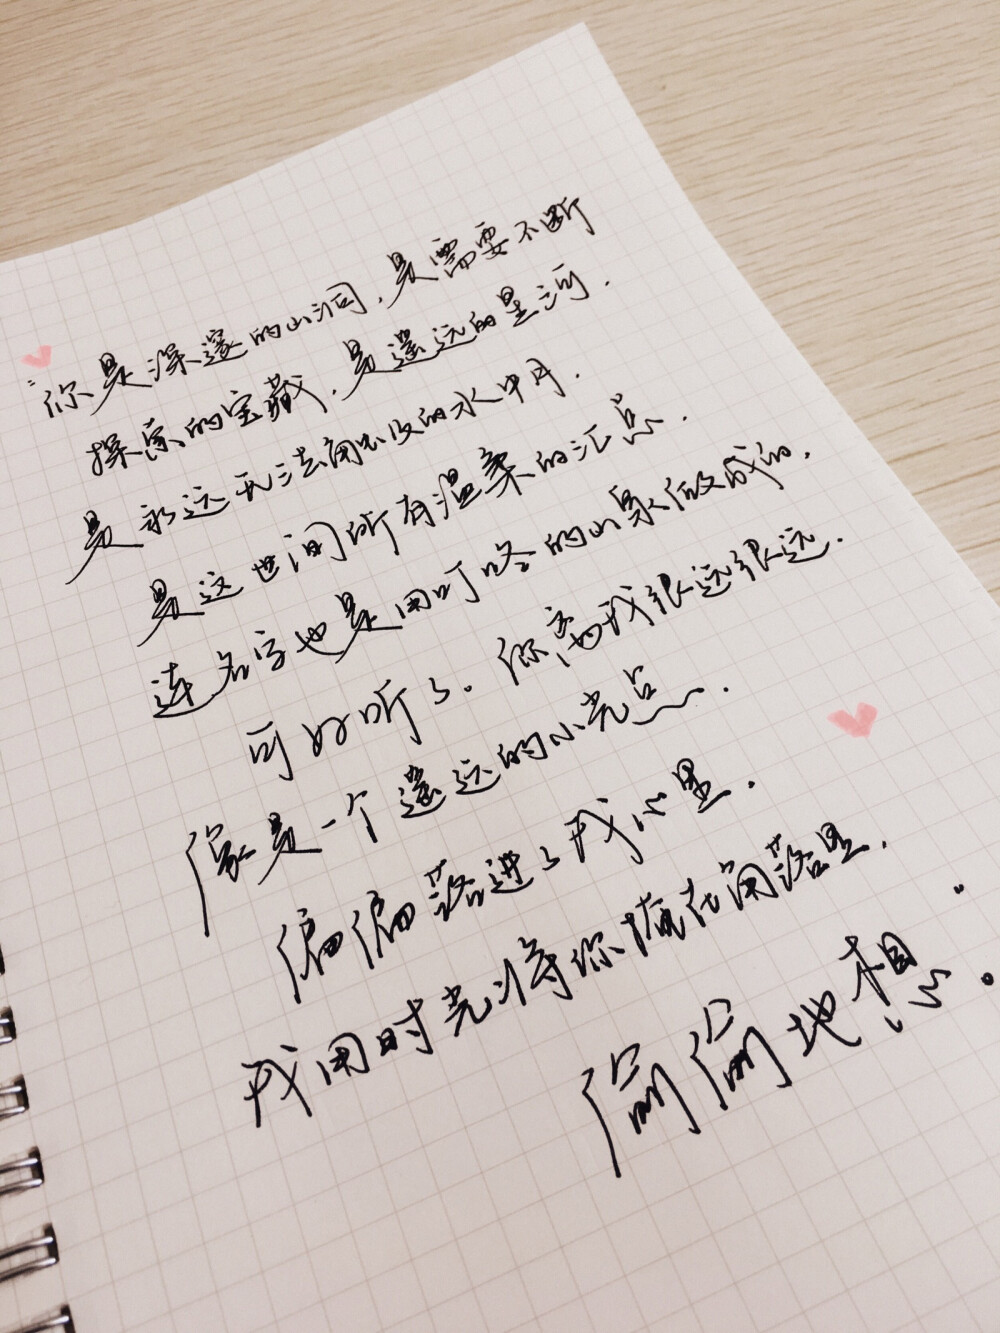 "你是深邃的山洞,是需要不断
探索的宝藏,是遥远的星河.
是永远无法解救的水中月.
是这世间所有温柔的汇总.
连名字也是用叮咚的山泉做成的,
可好听了。你离我很远很远.
像是一个遥远的小光点.
偏偏落进了我心里.
我用时光将你掩在角落里.
偷偷地想.